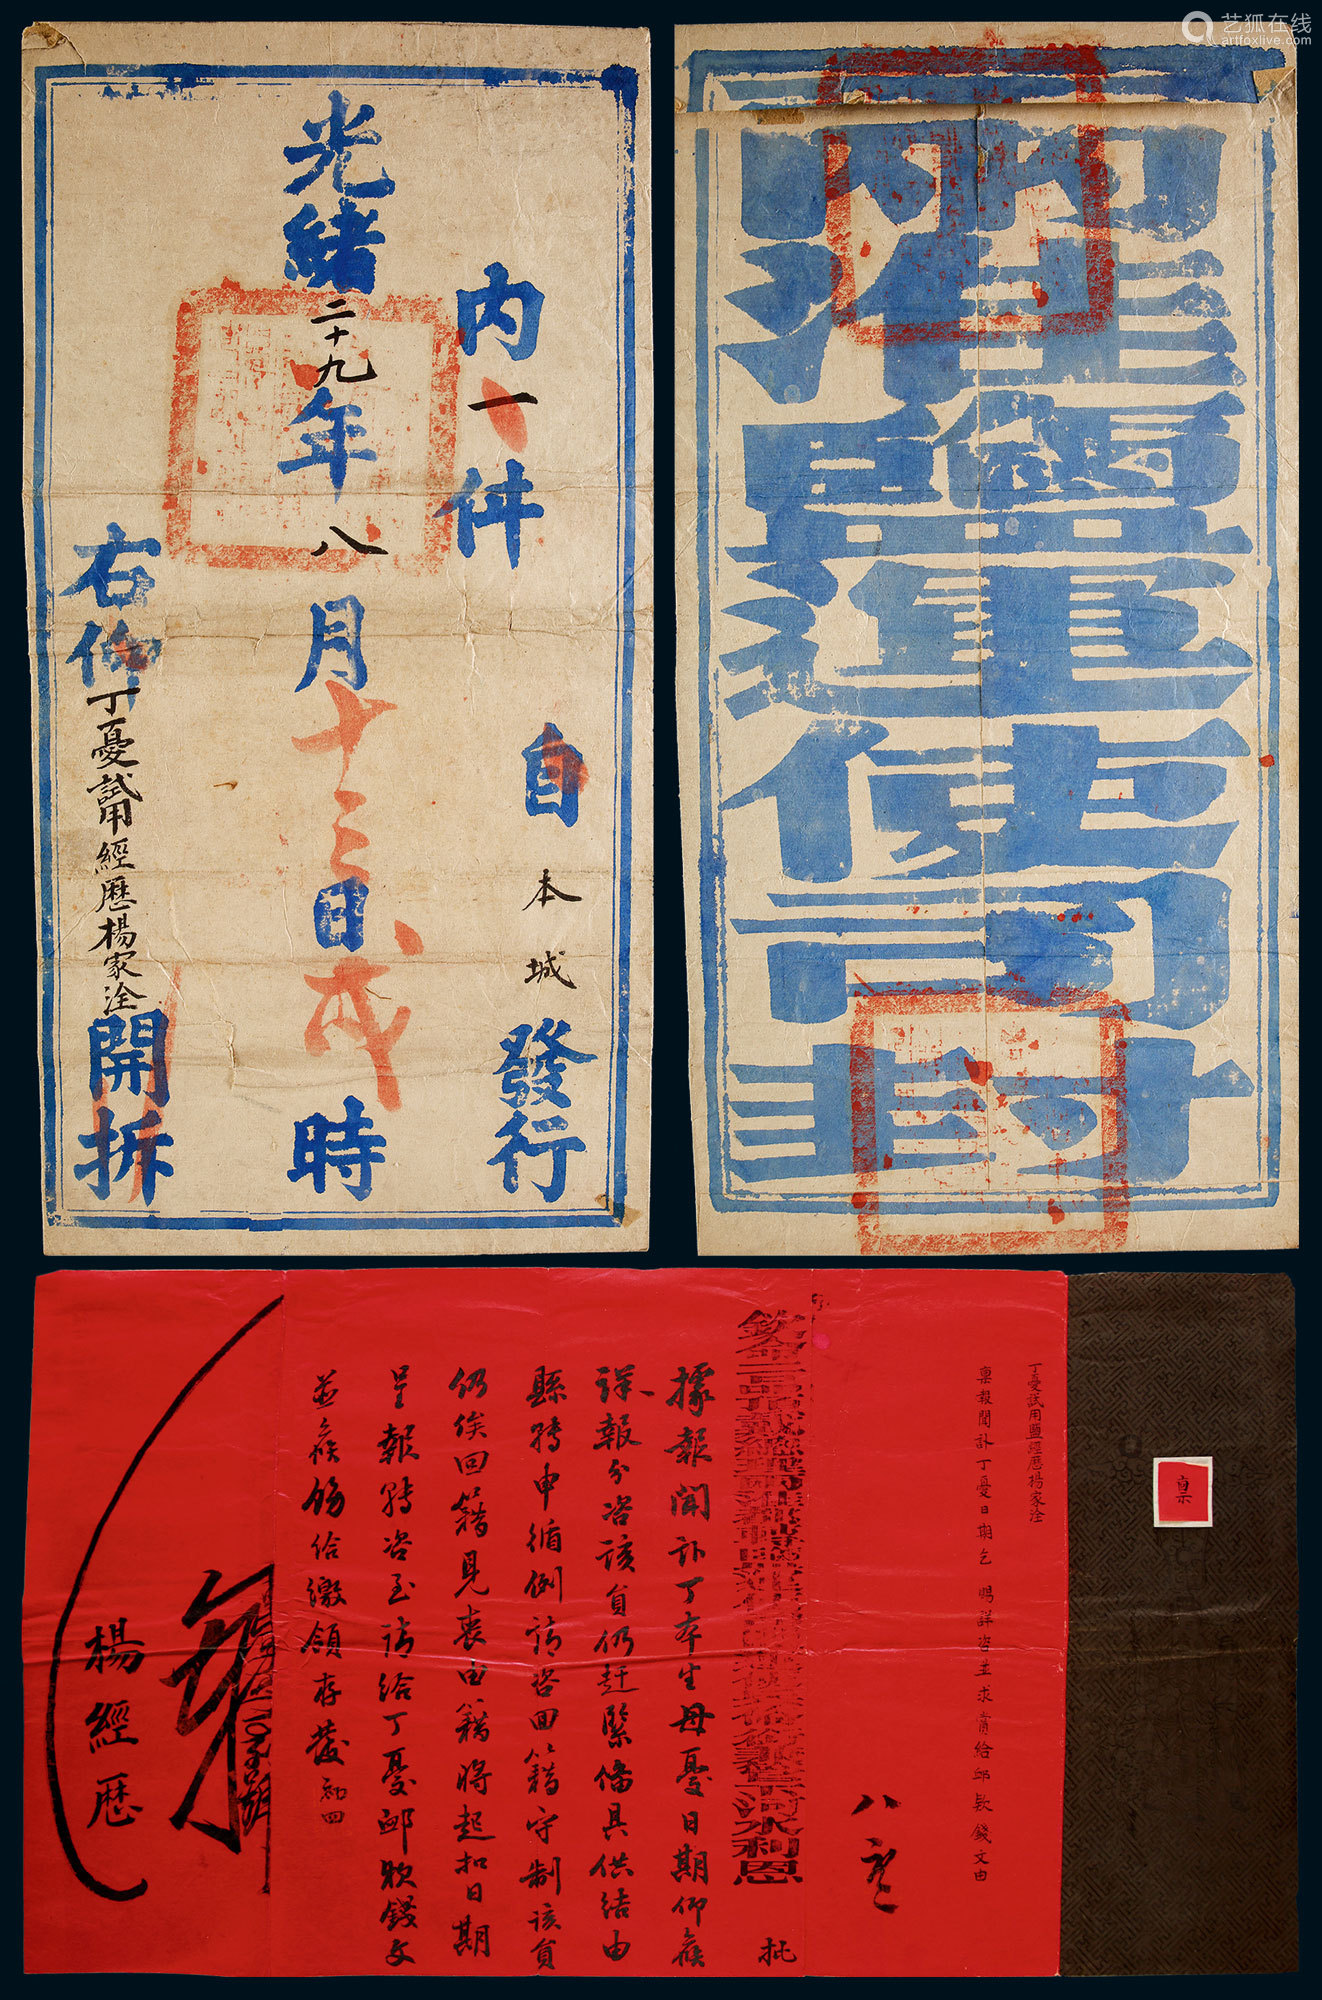 艺狐在线
artfoxlive.com
內一件
自本城發行
光緒二十九年八月十三日戌時
右仰丁憂試用經歷楊家淦開拆
兩淮鹽運使司封
稟
丁憂試用鹽經歷楊家淦
稟報聞訃丁憂日期乞 賜詳咨並求賞給邱欵錢文由
批
據報聞訃丁本生母憂日期仰候
詳報分咨該員仍赶緊備具供結由
縣轉申循例請咨回籍守制該員
仍俟回籍見喪由籍將起扣日期
呈報轉咨至請給丁憂邮欵錢文
並候飭給繳領存發 初四
楊經歷